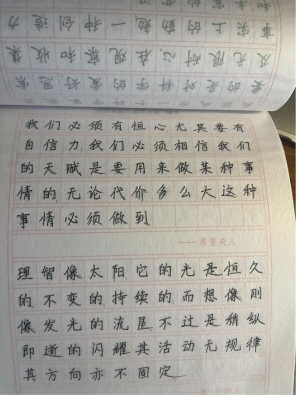 无限耐心,在观察和收集
事实上的勤勉,一种创造力
我们必须有恒心尤其要有
自信力我们必须相信我们
的天赋是要用来做某种事
情的无论代价多么大这种
事情必须做到
——居里夫人
理智像太阳它的光是恒久
的不变的持续的而想像则
像发光的流星不过是稍纵
即逝的闪耀其活动无规律
其方向亦不固定